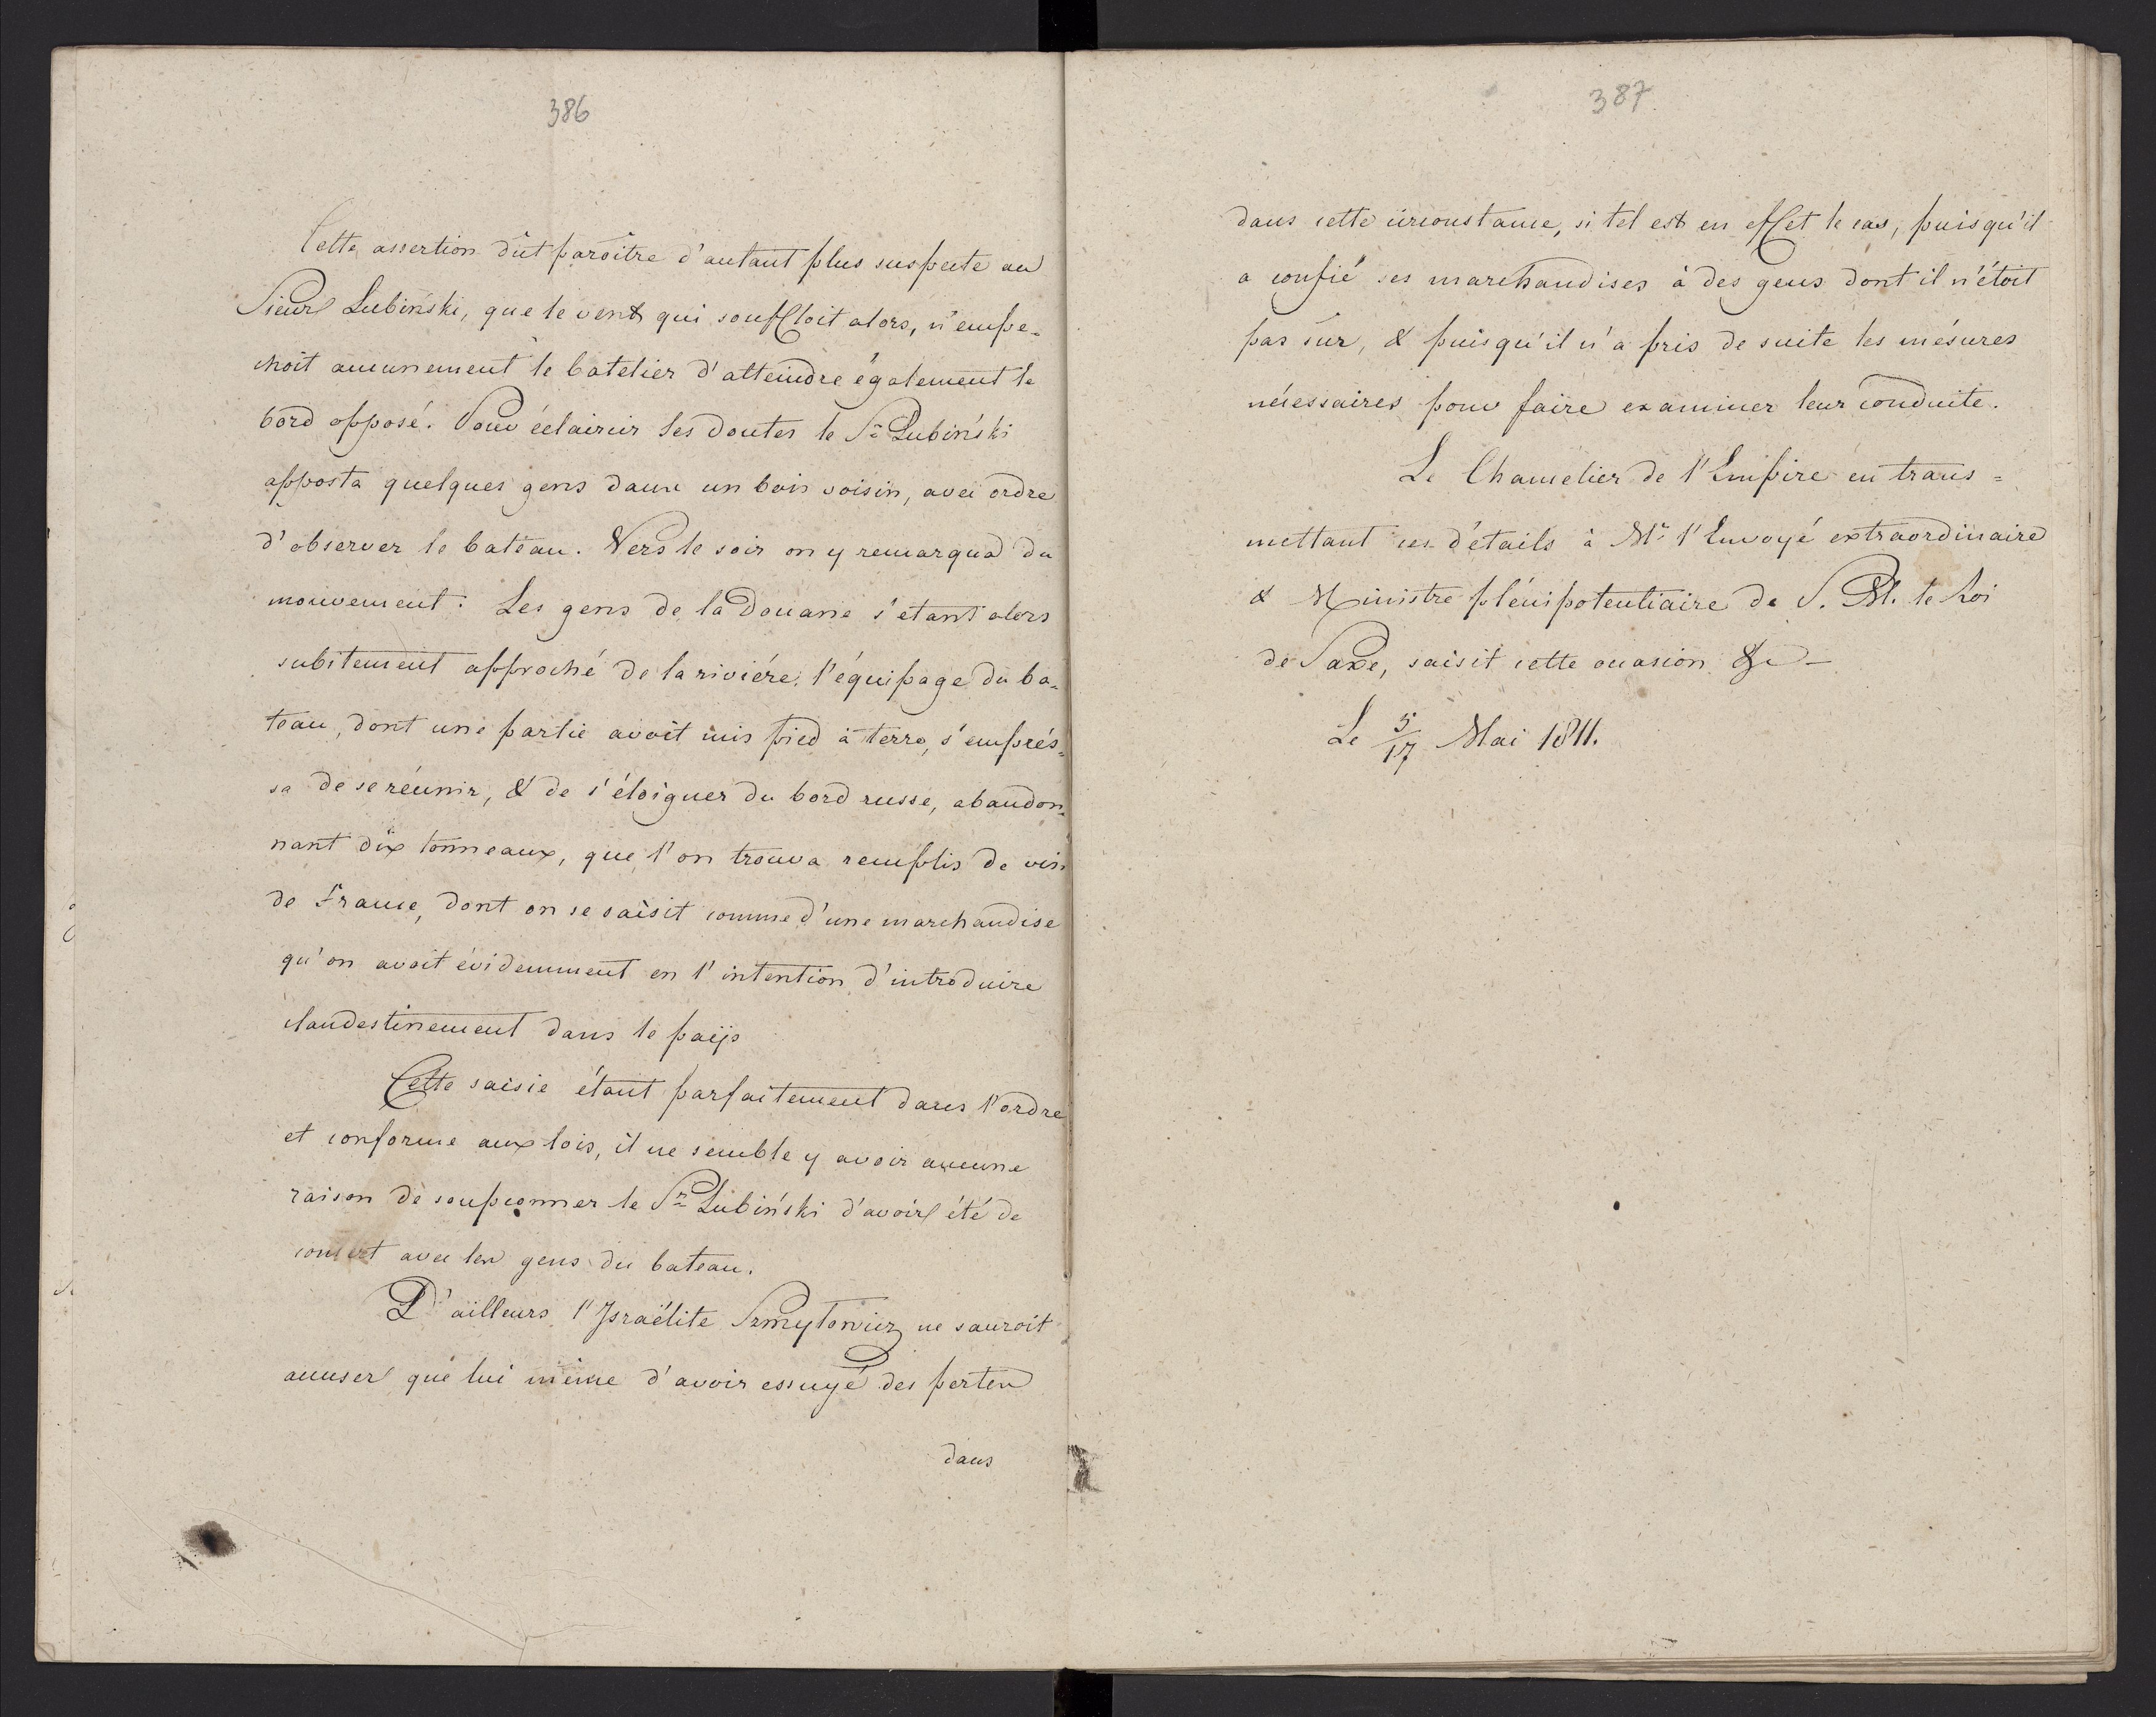 386
Cette assertion dût paroître d'autant plus suspecte au
Sieur Lubiński, que le vent qui souffloit alors, n'empe-
choit aucunement le batelier d'atteindre également le
bord opposé. Pour éclaircir ses doutes le Sr Lubiński
apposta quelques gens dans un bois voisin, avec ordre
d'observer le bateau. Vers le soir on y remarqua du
mouvement: Les gens de la Douane s'etant alors
subitement approché de la riviére, l'équipage du ba-
teau, dont une partie avoit mis pied à terre, s'emprés-
sa de se réunir, & de s'éloigner du bord russe, abandon-
nant dix tonneaux, que l'on trouva remplis de vin
de France, dont on se saisit comme d'une marchandise
qu'on avoit évidemment en l'intention d'introduire
clandestinement dans le païjs
Cette saisie étant parfaitement dans l'ordre
et conforme aux lois, il ne semble y avoir aucune
raison de soupçonner le Sr Lubiński d'avoir été de
concert avec les gens du bateau.
D'ailleurs l'Israélite Szmytowicz ne sauroit
accuser que lui même d'avoir essuyé des pertes
dans
387.
dans cette circonstance, si tel est en effet le cas, puisqu'il
a confié ses marchandises à des gens dont il n'étoit
pas sur, & puisqu'il n'a pris de suite les mésures
nécessaires pour faire examiner leur conduite.
Le Chancelier de l'Empire en trans=
mettant ces détails à Mr l'Envoyé extraordinaire
& Ministre plénipotentiaire de S. M. le Roi
de Saxe, saisit cette occasion &c -
Le 5/17 Mai 1811.